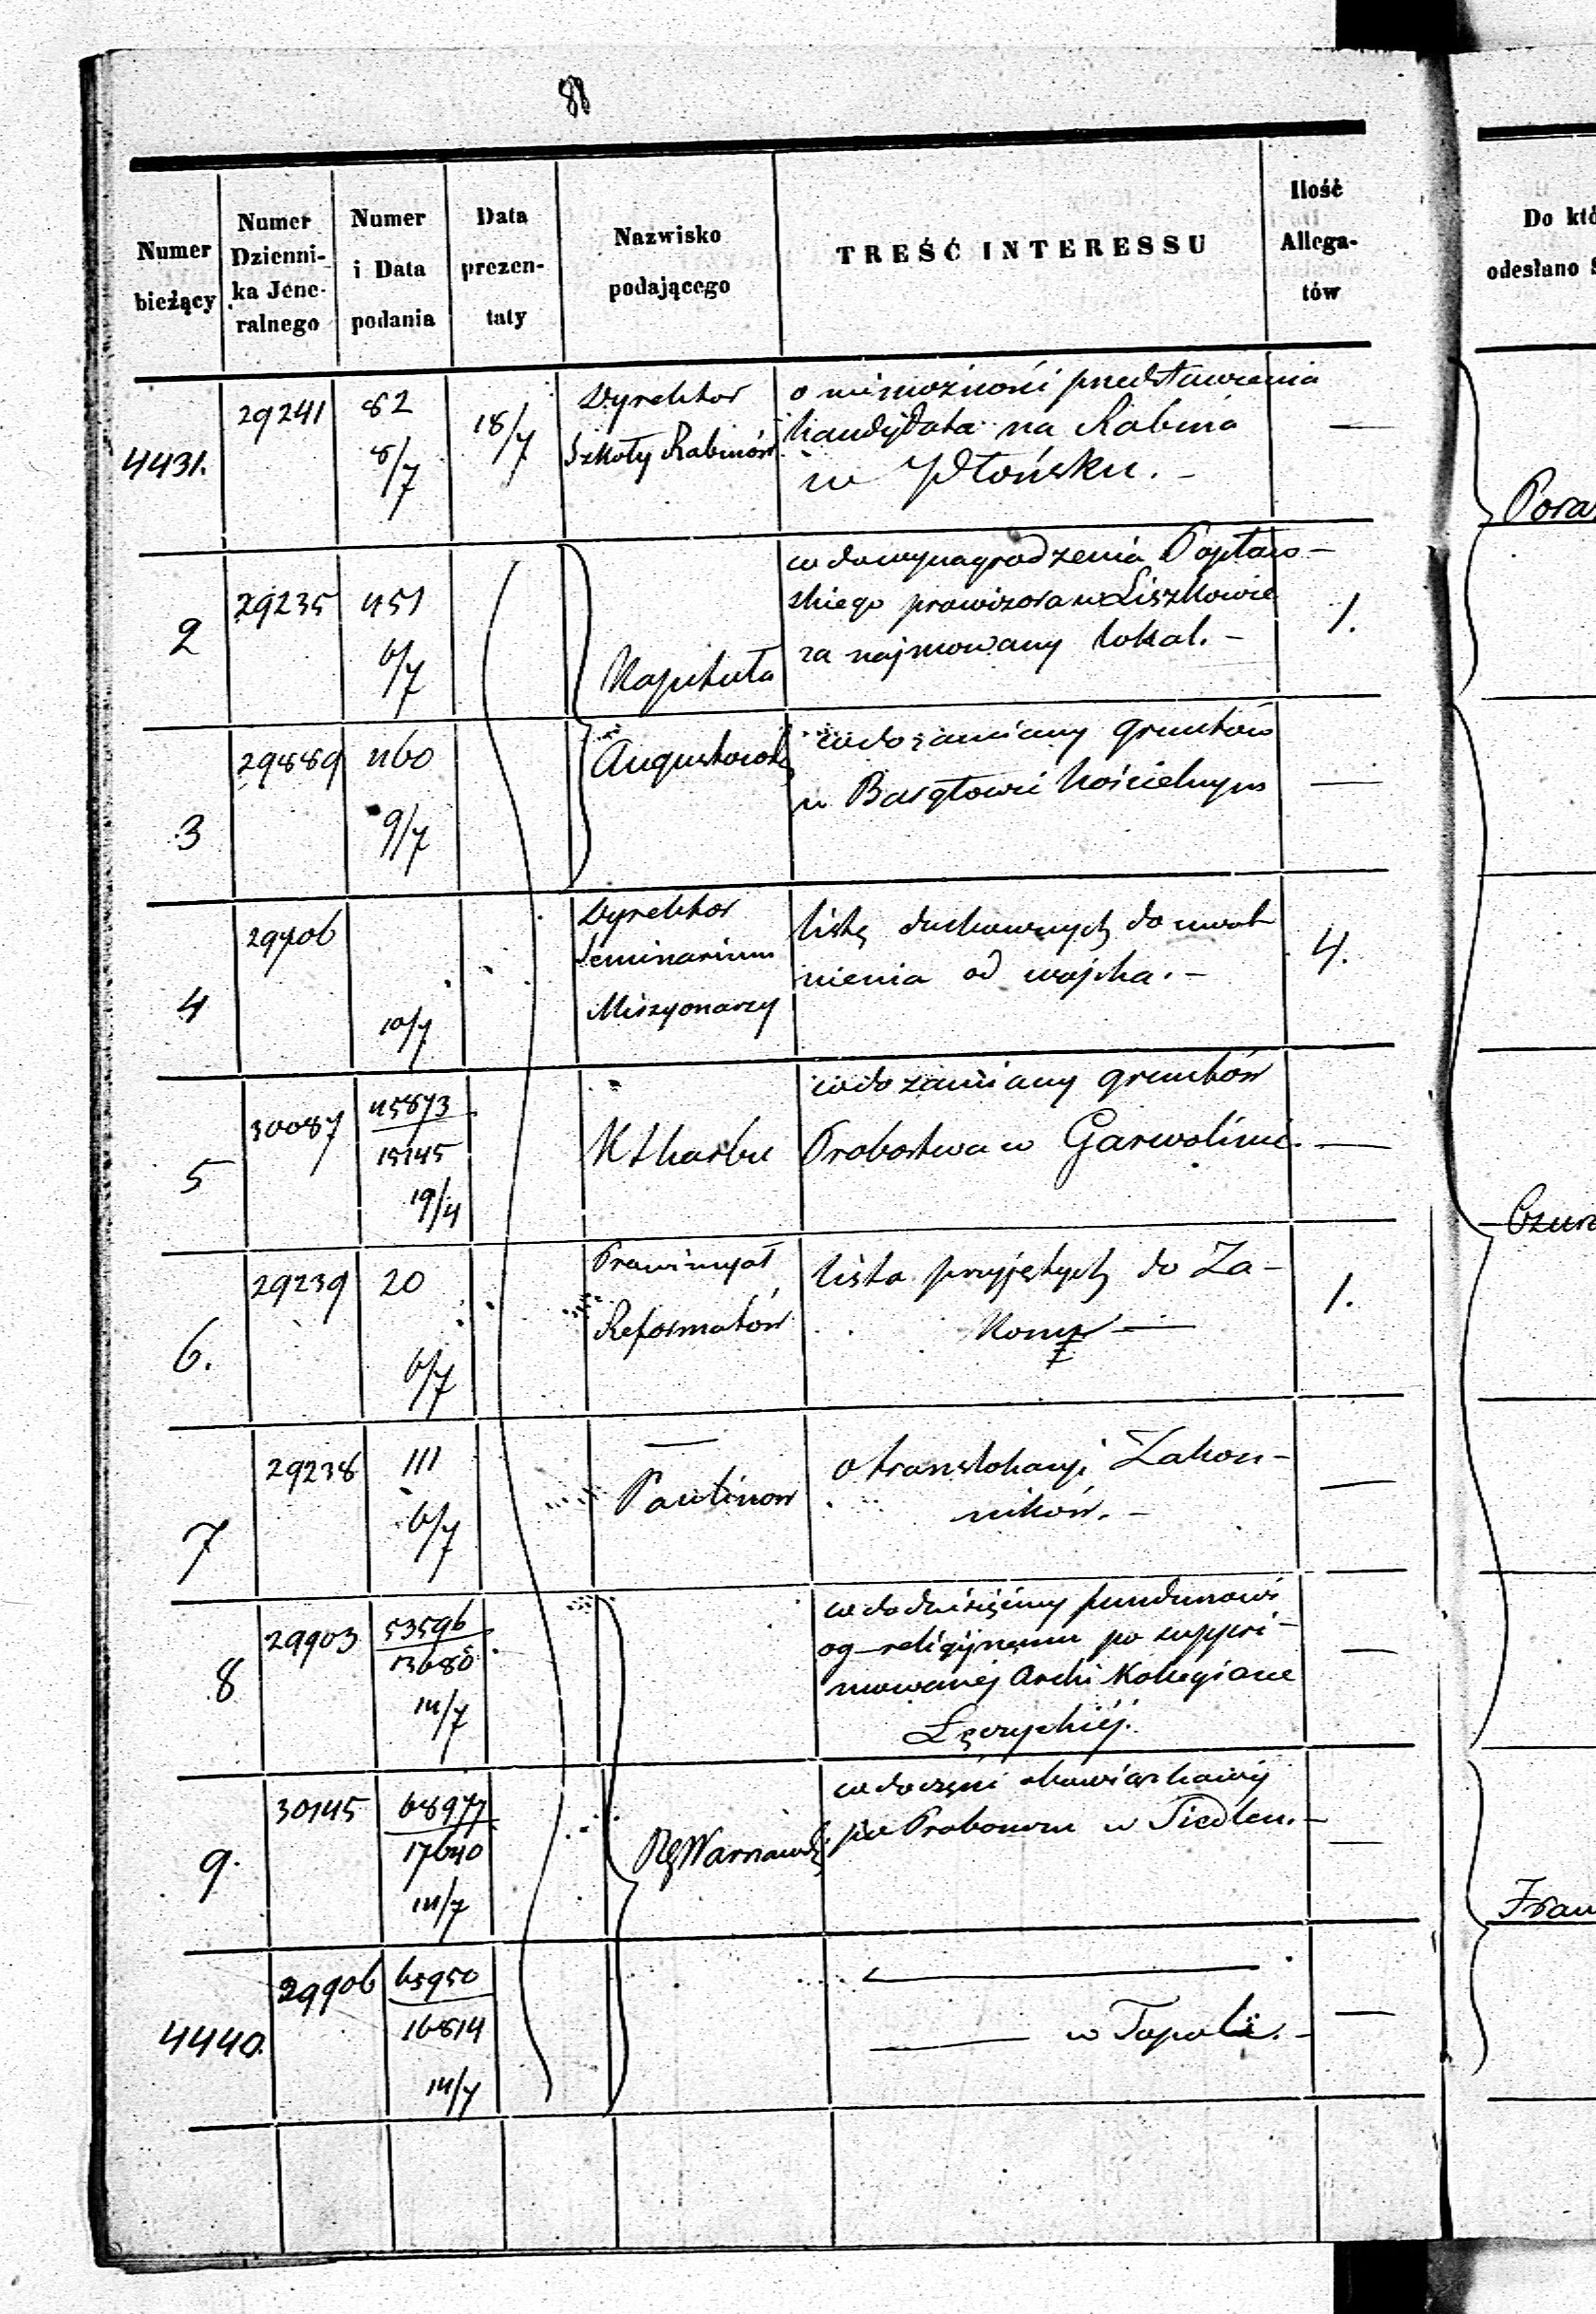 88
Numer bieżący
Numer Dzienni-ka Jene-ralnego
Numer i Data podania
Data prezen-taty
Nazwisko podającego
TREŚĆ INTERESSU
Ilość Allega-tów
Do któ
odesłano
4431. 29241 82 8/7 18/7
Dyrektor
Szkoły Rabinów
o niemożności przedstawienia
kandydata na Rabina
w Płońsku. -
—
2 29235 451 6/7
Kapituła
co do wynagrodzenia
skiego prowizora w Liszkowie
za najmowany lokal. -
1.
3 29889 460 9/7
Augustowska
co do zamiany gruntów
w Bargłowie Kościelnym
—
4 29706 10/7
Dyrektor
Seminarium
Missyonarzy
listę duchownych do uwol
nienia od wojska. -
4.
5 30087 45873 15145 19/4
K Skarbu
co do zamiany gruntów
Probostwa w Garwolinie. —
6. 29239 20 6/7
Prowincyał
Reformatów
lista przyjętych do Za-
konu —
1.
7 29238 111 6/7
—
Paulinów
o translokacyi Zakon-
ników. -
—
8 29903 53596 13680 14/7
co do dziesięciny funduszowi
og-religijnemu po suppri-
mowanej Archi Kollegiacie
Łęczyckiéj.
—
9. 30145 68977 17640 14/7
RgWarszawski
co do części
w
—
4440. 29906 65950 16814 14/7
—
— w Topoli. -
—
Pora
Czur
Fran